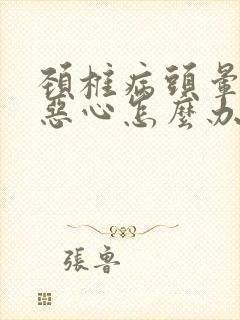 頚椎病頭暈
惡心怎麼办
張魯